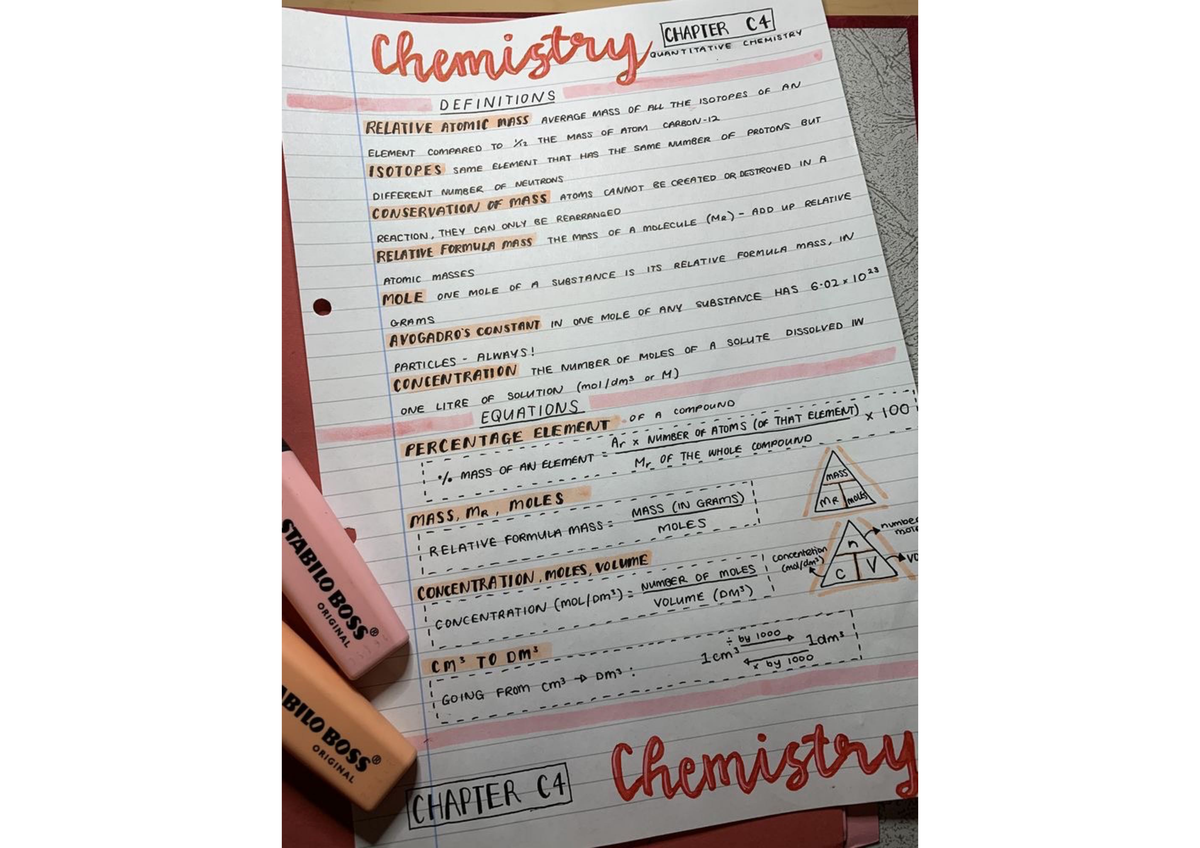 Chemistry
CHAPTER C4
QUANTITATIVE CHEMISTRY
DEFINITIONS
RELATIVE ATOMIC MASS AVERAGE MASS OF ALL THE ISOTOPES OF AN
ELEMENT COMPARED TO 1/12 THE MASS OF ATOM CARBON-12
ISOTOPES SAME ELEMENT THAT HAS THE SAME NUMBER OF PROTONS BUT
DIFFERENT NUMBER OF NEUTRONS
CONSERVATION OF MASS ATOMS CANNOT BE CREATED OR DESTROYED IN A
REACTION, THEY CAN ONLY BE REARRANGED
RELATIVE FORMULA MASS THE MASS OF A MOLECULE (MR) - ADD UP RELATIVE
ATOMIC MASSES
MOLE ONE MOLE OF A SUBSTANCE IS ITS RELATIVE FORMULA MASS, IN
GRAMS
AVOGADRO'S CONSTANT IN ONE MOLE OF ANY SUBSTANCE HAS 6.02 x 10²³
PARTICLES - ALWAYS!
CONCENTRATION THE NUMBER OF MOLES OF A SOLUTE DISSOLVED IN
ONE LITRE OF SOLUTION (mol/dm³ or M)
EQUATIONS
PERCENTAGE ELEMENT OF A COMPOUND
% MASS OF AN ELEMENT = Ar x NUMBER OF ATOMS (OF THAT ELEMENT) x 100
Mr OF THE WHOLE COMPOUND
MASS
MR MOLES
MASS, MR, MOLES
RELATIVE FORMULA MASS = MASS (IN GRAMS)
MOLES
n
C V
number
concentration
(mol/dm³)
CONCENTRATION, MOLES, VOLUME
CONCENTRATION (MOL/DM³) = NUMBER OF MOLES
VOLUME (DM³)
CM³ TO DM³
GOING FROM cm³ → DM³ :
÷ by 1000
1cm³ 1dm³
x by 1000
CHAPTER C4
Chemistry
STABILO BOSS®
ORIGINAL
ABILO BOSS®
ORIGINAL